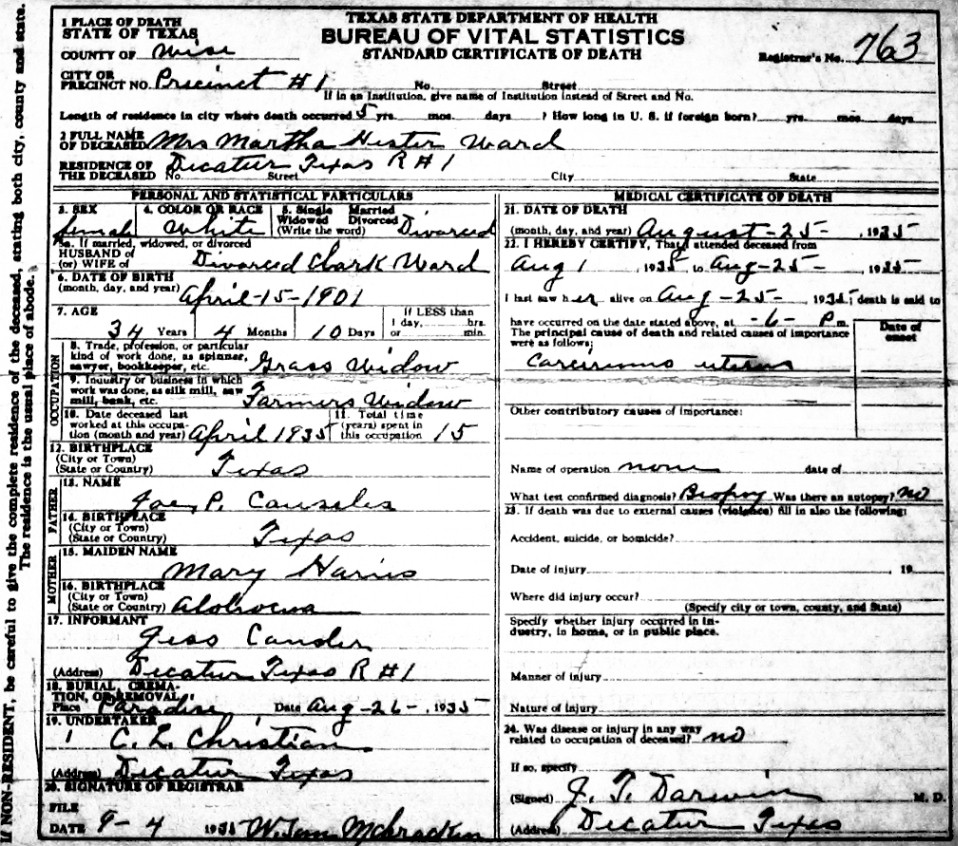 TEXAS STATE DEPARTMENT OF HEALTH
BUREAU OF VITAL STATISTICS
STANDARD CERTIFICATE OF DEATH
1 PLACE OF DEATH
STATE OF TEXAS
COUNTY OF Wise
Registrar's No. 763
CITY OR
PRECINCT NO. Precinct #1 No. Street
If in an Institution, give name of Institution instead of Street and No.
Length of residence in city where death occurred 5 yrs. mos. days ? How long in U. S. if foreign born? yrs. mos. days
2 FULL NAME
OF DECEASED Mrs Martha Hester Ward
RESIDENCE OF
THE DECEASED No. Decatur Texas R #1 Street City State
PERSONAL AND STATISTICAL PARTICULARS
3. SEX 4. COLOR OR RACE 5. Single Married
Widowed Divorced
(Write the word) Divorced
female White
5a. If married, widowed, or divorced
HUSBAND of
(or) WIFE of Divorced Clark Ward
6. DATE OF BIRTH
(month, day, and year) April-15-1901
7. AGE If LESS than
34 Years 4 Months 10 Days 1 day, hrs.
or min.
OCCUPATION
8. Trade, profession, or particular
kind of work done, as spinner,
sawyer, bookkeeper, etc. Grass Widow
9. Industry or business in which
work was done, as silk mill, saw
mill, bank, etc. Farmers Widow
10. Date deceased last
worked at this occupa-
tion (month and year) April 1935
11. Total time
(years) spent in
this occupation 15
12. BIRTHPLACE
(City or Town)
(State or Country) Texas
FATHER
13. NAME
P.
14. BIRTHPLACE
(City or Town)
(State or Country) Texas
MOTHER
15. MAIDEN NAME
Mary Harris
16. BIRTHPLACE
(City or Town)
(State or Country)
17. INFORMANT
Jess
(Address) Decatur Texas R #1
18. BURIAL, CREMA-
TION, OR REMOVAL
Place Paradise Date Aug-26-, 1935
19. UNDERTAKER
C. L. Christian
(Address) Decatur Texas
20. SIGNATURE OF REGISTRAR
FILE
DATE 9-4 1935
MEDICAL CERTIFICATE OF DEATH
21. DATE OF DEATH
(month, day, and year) August-25-, 1935
22. I HEREBY CERTIFY, That I attended deceased from
Aug 1, 1935 to Aug-25-, 1935
I last saw her alive on Aug-25-, 1935; death is said to
have occurred on the date stated above, at -6- P m.
The principal cause of death and related causes of importance
were as follows:
Date of
onset
uterus
Other contributory causes of importance:
Name of operation none date of
What test confirmed diagnosis? Biopsy Was there an autopsy? no
23. If death was due to external causes (violence) fill in also the following:
Accident, suicide, or homicide?
Date of injury , 19
Where did injury occur?
(Specify city or town, county, and State)
Specify whether injury occurred in in-
dustry, in home, or in public place.
Manner of injury
Nature of injury
24. Was disease or injury in any way
related to occupation of deceased? no
If so, specify
(Signed) J. T. Darwin M. D.
(Address) Decatur Texas
If NON-RESIDENT, be careful to give the complete residence of the deceased, stating both city, county and state.
The residence is the usual place of abode.